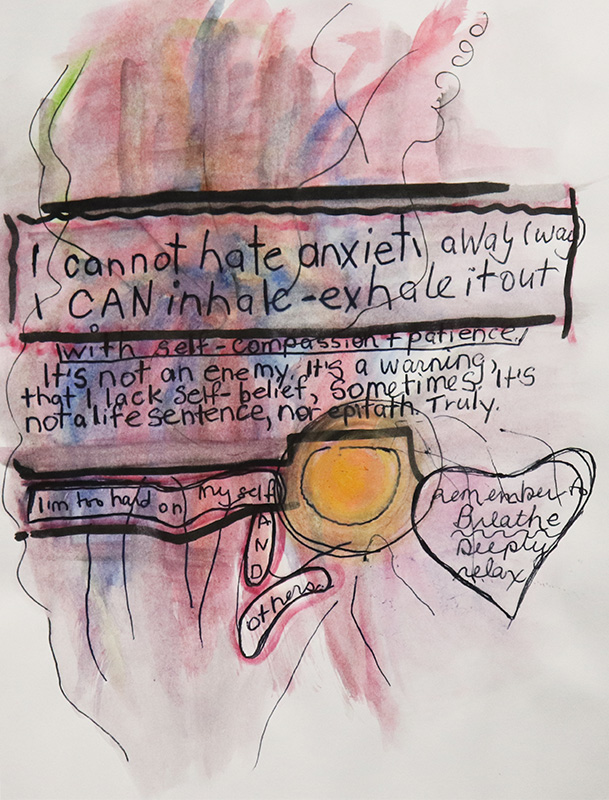 I cannot hate anxiety away (way)
I CAN inhale-exhale it out
with self-compassion + patience.
It's not an enemy. It's a warning,
that I lack self-belief, sometimes. It's
not a life sentence, nor epitath. Truly.
I'm too hard on myself
AND
others.
remember to
Breathe
Deeply
relax